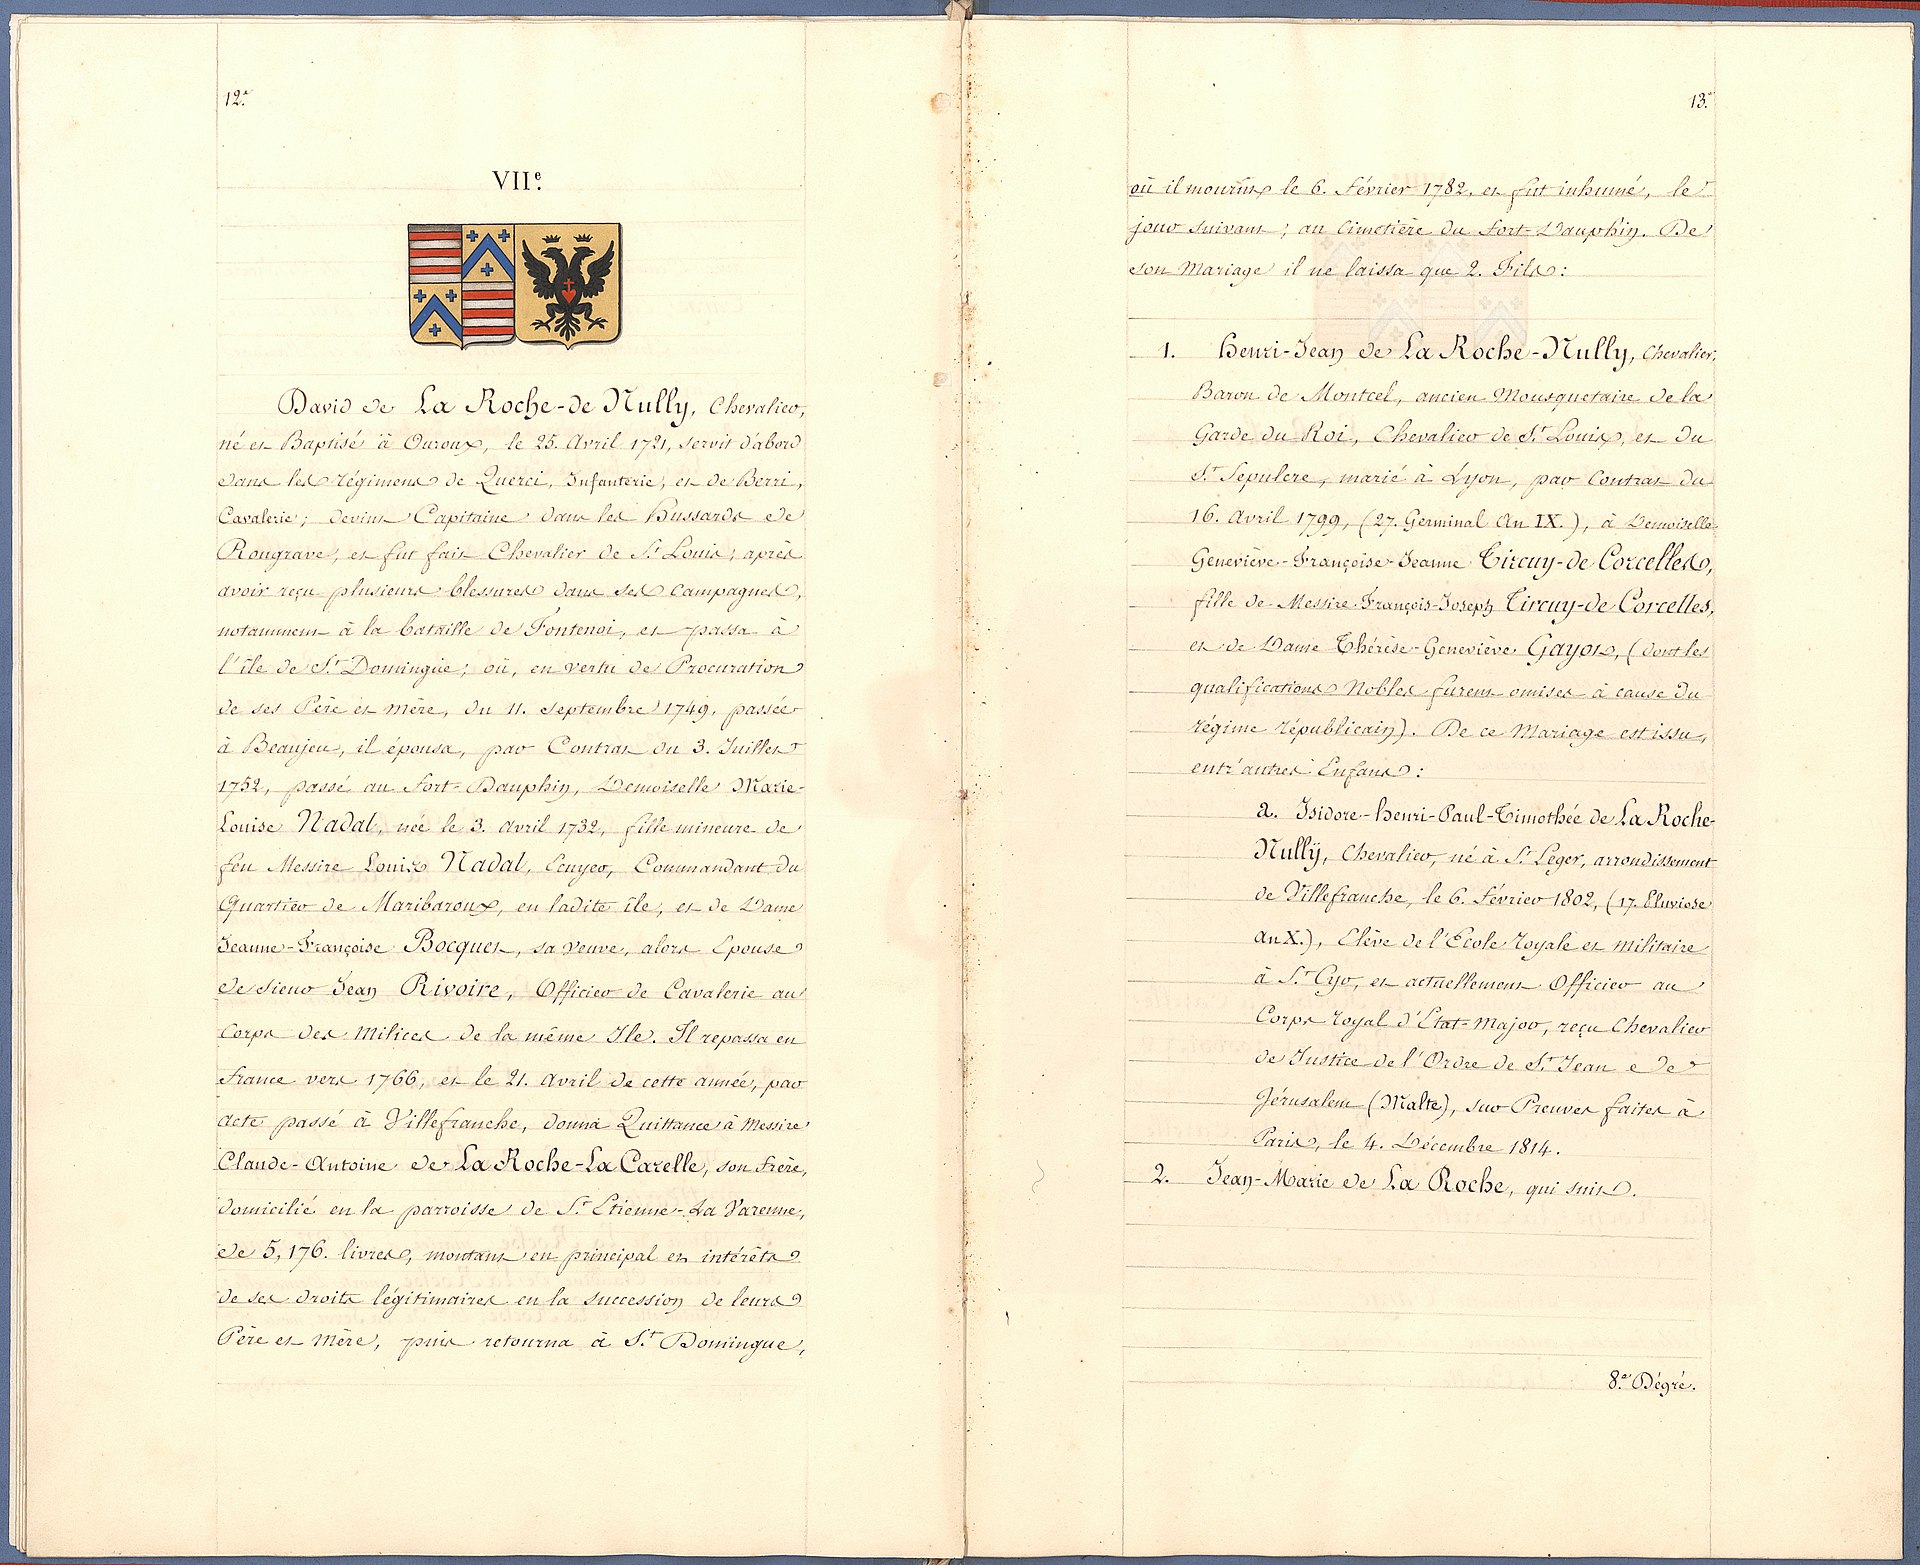 12.e
VII.e
David de La Roche-de Nully, Chevalier,
né et Baptisé à Ouroux, le 25. Avril 1721, servit d'abord
dans les régimens de Querci, Infanterie, et de Berri,
Cavalerie; devint Capitaine dans les Hussards de
Rougrave, et fut fait Chevalier de St. Louis, après
avoir reçu plusieurs blessures dans ses campagnes,
notamment à la bataille de Fontenoi, et passa à
l'île de St. Domingue; où, en vertu de Procuration
de ses Père et Mère, du 11. Septembre 1749, passée
à Beaujeu, il épousa, par Contrat du 3. Juillet
1752, passé au Fort-Dauphin, Demoiselle Marie-
Louise Nadal, née le 3. Avril 1732, fille mineure de
feu Messire Louis Nadal, Ecuyer, Commandant du
Quartier de Maribaroux, en ladite île, et de Dame
Jeanne-Françoise Bocquet, sa veuve, alors Epouse
de Sieur Jean Rivoire, Officier de Cavalerie au
Corps des Milices de la même Ile. Il repassa en
France vers 1766, et le 21. Avril de cette année, par
acte passé à Villefranche, donna Quittance à Messire
Claude-Antoine de La Roche-La Carelle, son frère,
domicilié en la parroisse de St. Etienne-La Varenne,
de 5,176. livres, montant en principal et intérêts
de ses droits légitimaires en la succession de leurs
Père et Mère, puis retourna à St. Domingue,
13.e
où il mourut le 6. Février 1782, et fut inhumé, le
jour suivant; au Cimetière du Fort-Dauphin. De
son Mariage il ne laissa que 2. Fils:
1. Henri-Jean de La Roche-Nully, Chevalier,
Baron de Montcel, ancien Mousquetaire de la
Garde du Roi, Chevalier de St. Louis, et du
St. Sepulcre, marié à Lyon, par Contrat du
16. Avril 1799, (27. Germinal An IX.), à Demoiselle
Geneviève-Françoise-Jeanne Tircuy-de Corcelles,
fille de Messire François-Joseph Tircuy-de Corcelles,
et de Dame Thérèse-Geneviève Gayot, (dont les
qualifications Nobles furent omises à cause du
régime républicain). De ce Mariage est issu,
entr'autres Enfans:
a. Isidore-Henri-Paul-Timothée de La Roche-
Nully, Chevalier, né à St. Léger, arrondissement
de Villefranche, le 6. Février 1802, (17. Pluviose
an X.), Elève de l'Ecole royale et militaire
à St. Cyr, et actuellement Officier au
Corps royal d'Etat-Major, reçu Chevalier
de Justice de l'Ordre de St. Jean de
Jérusalem (Malte), sur Preuves faites à
Paris, le 4. Décembre 1814.
2. Jean-Marie de La Roche, qui suit.
8.e Dégré.